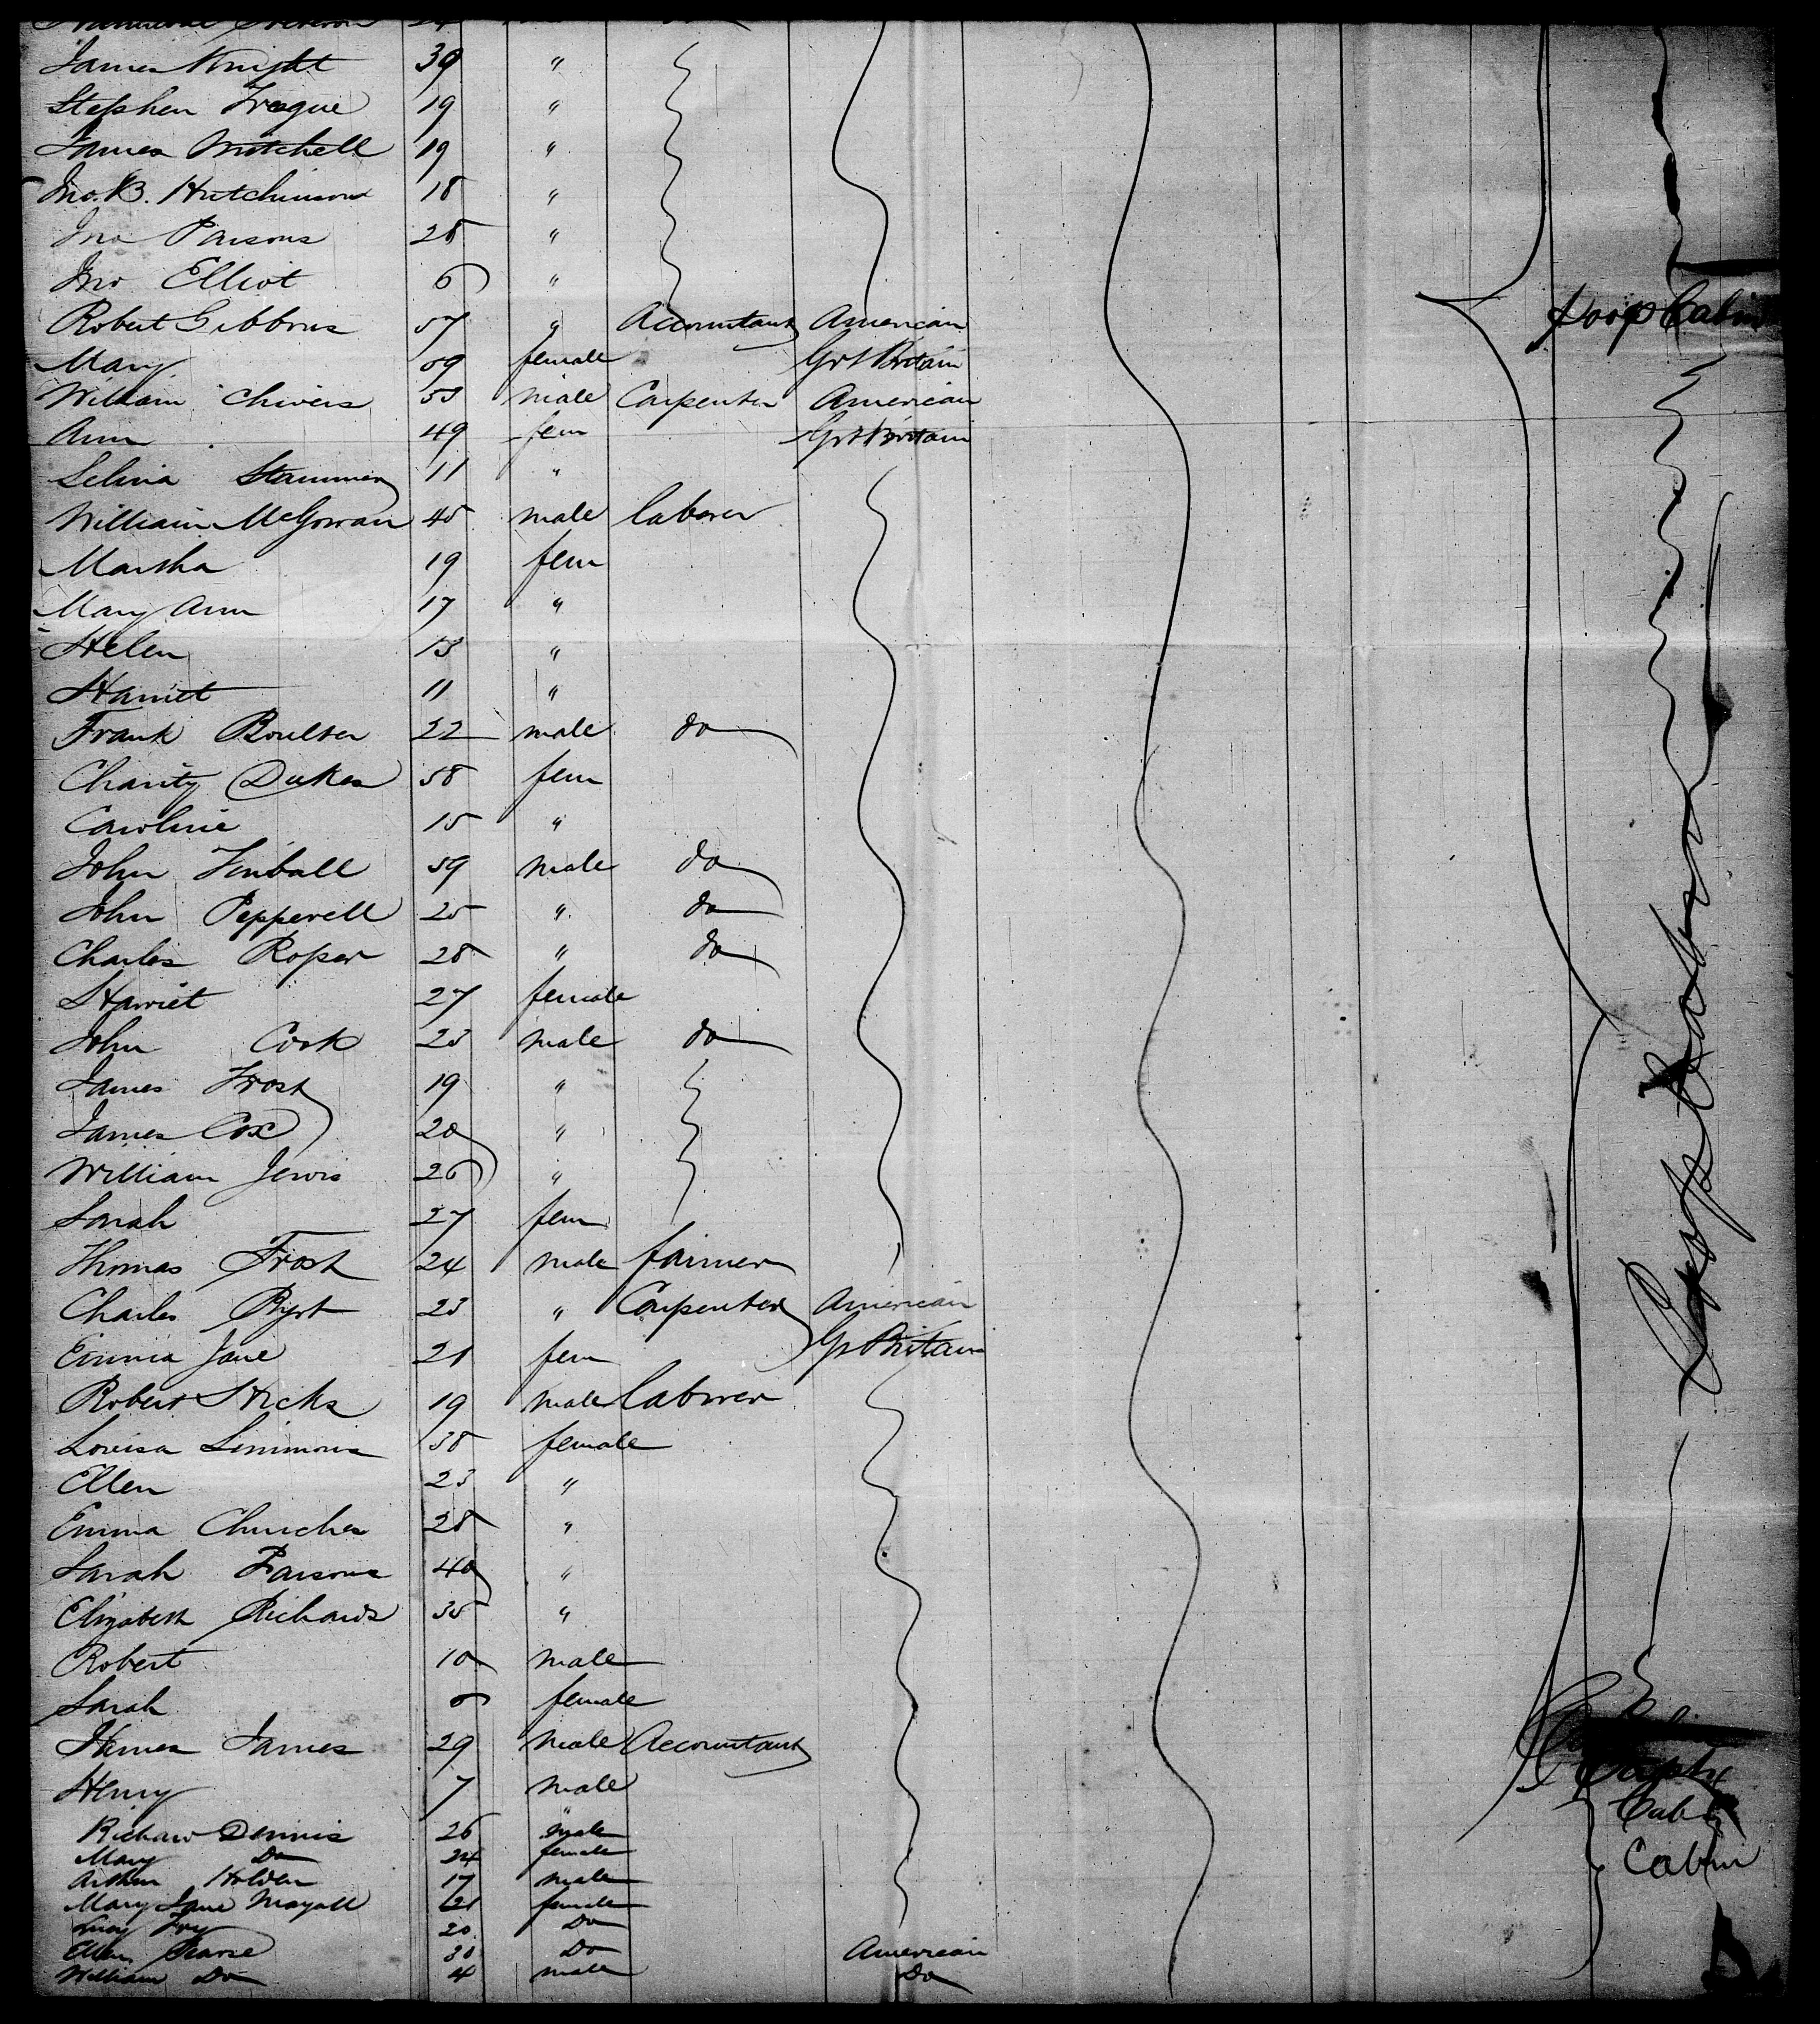 24
James Knight 39 "
Stephen Treque 19 "
James Mitchell 19 "
Jno. B. Hutchinson 18 "
Jno Parsons 28 "
Jno Elliot 6 "
Robert Gibbons 57 " Accountant American Poop Cabin
Mary 59 female Grt Britain
William Chivers 53 male Carpenter American
Ann 49 fem Grt Britain
Selina 11 "
William McGowan 45 male laborer
Martha 19 fem
Mary Ann 17 "
Helen 13 "
Harriet 11 "
Frank Boulter 22 male do
Charity Dukes 58 fem
Caroline 15 "
John Kimball 59 male do
John Pepperell 25 " do
Charles Roper 28 " do
Harriet 27 female
John Cook 23 male do
James Frost 19 "
James Cox 20 "
William Jewis 26 "
Sarah 27 fem
Thomas Frost 24 male farmer
Charles Byrt 23 " Carpenter American
Emma Jane 21 fem Gr Britain
Robert Hicks 19 male laborer
Louisa Simmons 38 female
Ellen 23 "
Emma Churcher 28 "
Sarah Parsons 40 "
Elizabeth Richards 35 "
Robert 10 male
Sarah female
James 29 male Accountant
Henry 7 male
Richard Dennis 26 male
Mary Do 24 female
Arthur Holden 17 male
Mary Jane Mayall 21 female
Lucy Fry 20 Do
Ellen Pearse 30 Do American
William Do 4 male Do
Poop Cabin
Cabin
Cabin